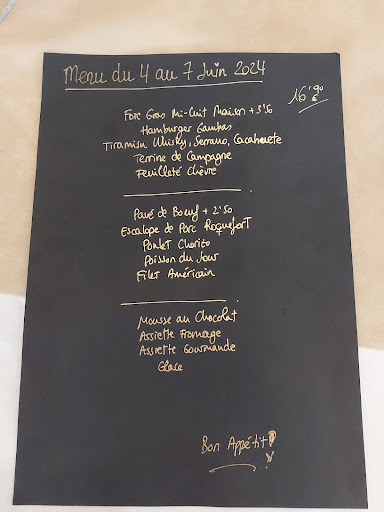 Menu du 4 au 7 Juin 2024
16'90 €
Foie Gras Mi-Cuit Maison + 3'50
Hamburger Gambas
Tiramisu Whisky, Serrano, Cacahuete
Terrine de Campagne
Feuilleté Chèvre
Pavé de Boeuf + 2'50
Escalope de Porc Roquefort
Poulet Chorizo
Poisson du Jour
Filet Américain
Mousse au Chocolat
Assiette Fromage
Assiette Gourmande
Glace
Bon Appétit !